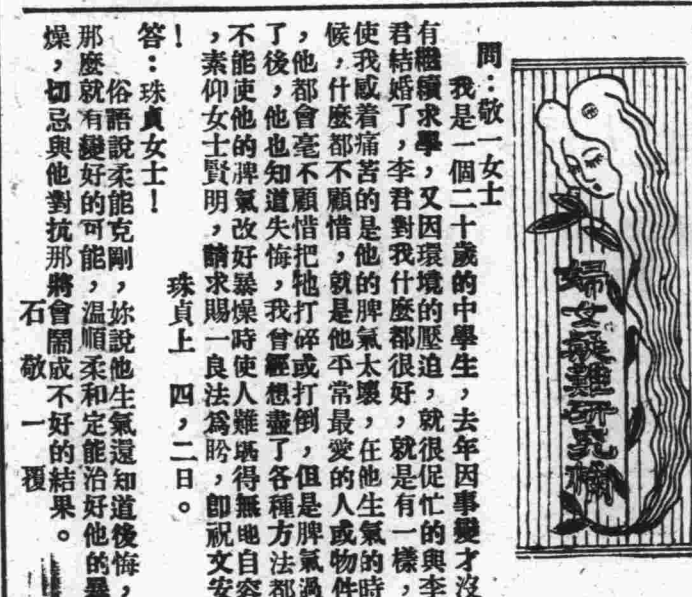 婦女疑難研究欄
問：敬一女士
我是一個二十歲的中學生，去年因事變才沒
有繼續求學，又因環境的壓迫，就很促忙的與李
君結婚了，李君對我什麼都很好，就是有一樣，
使我感着痛苦的是他的脾氣太壞，在他生氣的時
候，什麼都不顧惜，就是他平常最愛的人或物件
，他都會毫不顧惜把牠打碎或打倒，但是脾氣過
了後，他也知道失悔，我曾經想盡了各種方法都
不能使他的脾氣改好暴燥時使人難堪得無地自容
，素仰女士賢明，請求賜一良法爲盼，卽祝文安
！
珠貞上 四，二日。
答：珠貞女士！
俗語說柔能克剛，妳說他生氣還知道後悔，
那麼就有變好的可能，溫順柔和定能治好他的暴
燥，切忌與他對抗那將會鬧成不好的結果。
石敬一覆